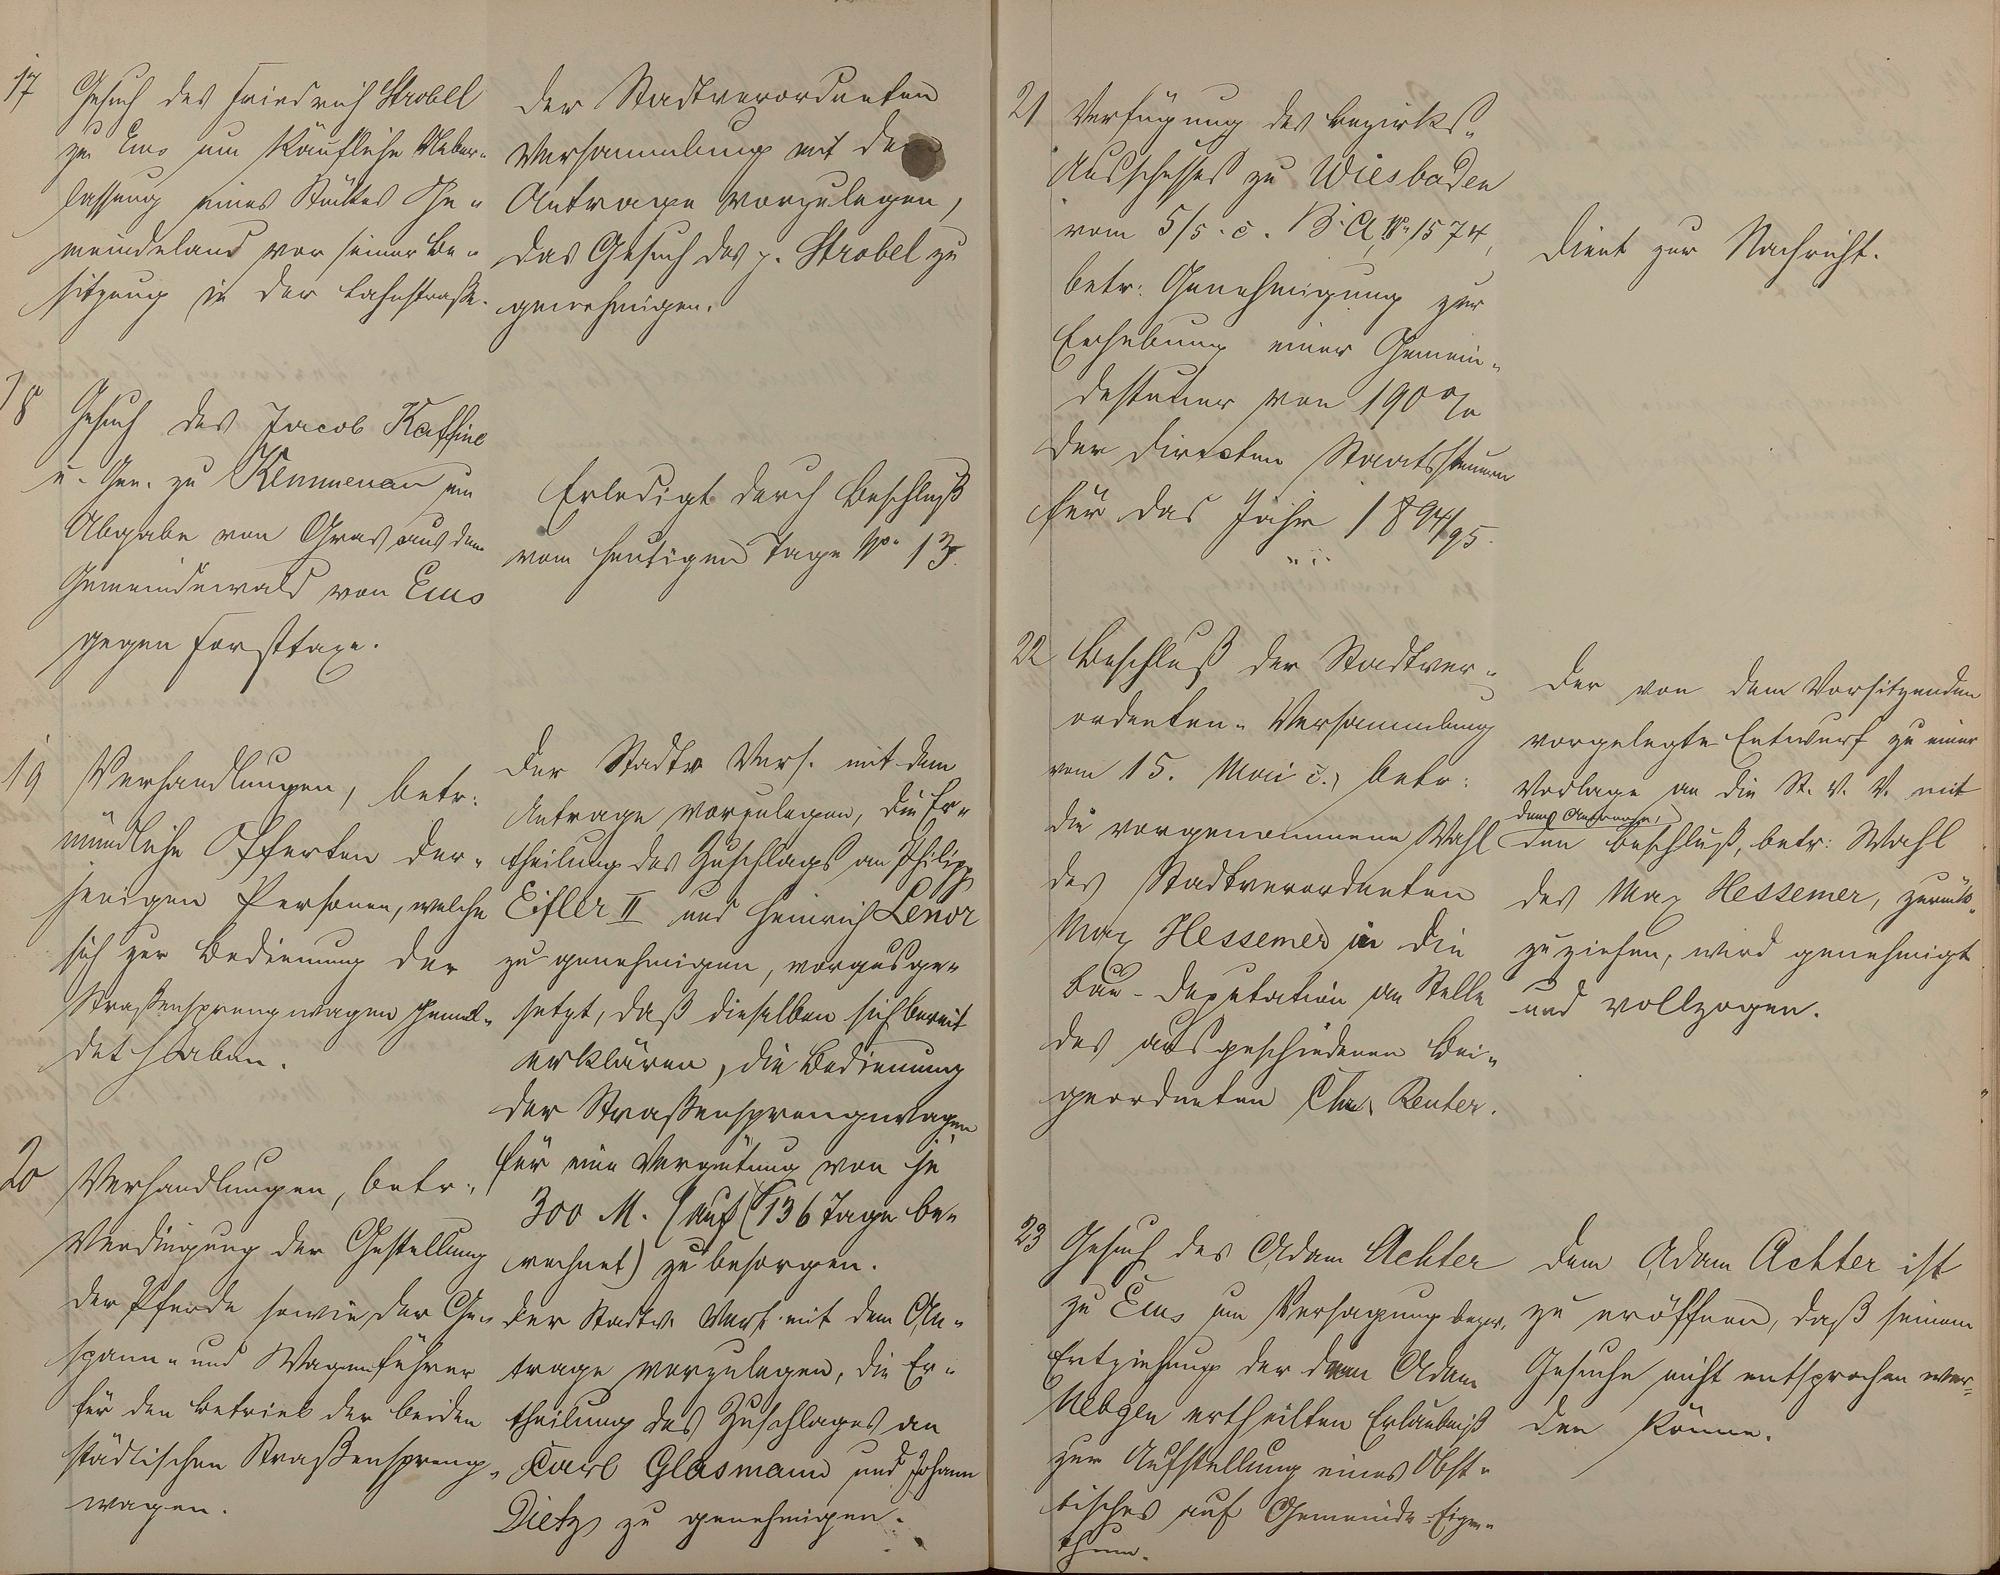 17
Gesuch des Friedrich Strobel
zu Ems um Käufliche Ueber-
lassung eines Stückes Ge-
meindeland vor seiner Be-
sitzung in der Lahnstraße.
Der Stadtverordneten
Versammlung mit dem
Antrage vorzulegen,
das Gesuch des p. Strobel zu
genehmigen.
18
Gesuch des Jacob Kaffine
u. Gen. zu Kemmenau um
Abgabe von Gras aus dem
Gemeindewald von Ems
gegen Forsttaxe.
Erledigt durch Beschluß
vom heutigen Tage No. 13.
19
Verhandlungen, betr:
mündliche Offerten der-
jenigen Personen, welche
sich zur Bedienung der
Straßensprengwagen gemel-
det haben.
Der Stadtv. Vers. mit dem
Antrage vorzulegen, die Er-
theilung des Zuschlags an Philipp
Eifler II und Heinrich Lenor
zu genehmigen, vorausge-
setzt, daß dieselben sich bereit
erklären, die Bedienung
der Straßensprengwagen
für eine Vergütung von je
300 M. (auf (136 Tage be-
rechnet) zu besorgen.
20
Verhandlungen, betr:
Verdingung der Gestellung
der Pferde sowie der Ge-
spann- und Wagenführer
für den Betrieb der beiden
städtischen Straßenspreng-
wagen.
Der Stadtv. Vers. mit dem An-
trage vorzulegen, die Er-
theilung des Zuschlages an
Carl Glasmann und Johann
Dietz zu genehmigen.
21
Verfügung des Bezirks-
Ausschusses zu Wiesbaden
vom 5/5. c. B. A. No. 1574,
betr: Genehmigung zur
Erhebung einer Gemein-
desteuer von 190 %
der directen Staatssteuern
für das Jahr 1894/95.
Dient zur Nachricht.
22
Beschluß der Stadtver-
ordneten-Versammlung
vom 15. Mai c., betr:
die vorgenommene Wahl
des Stadtverordneten
Max Hessemer in die
Bau-Deputation an Stelle
des ausgeschiedenen Bei-
geordneten Chr. Reuter.
Der von dem Vorsitzenden
vorgelegte Entwurf zu einer
Vorlage an die St. V. V. mit
dem Antrage,
den Beschluß, betr: Wahl
des Max Hessemer, zurück-
zuziehen, wird genehmigt
und vollzogen.
23
Gesuch des Adam Achter
zu Ems um Versagung bezw.
Entziehung der dem Adam
Uebgen ertheilten Erlaubniß
zur Aufstellung eines Obst-
tisches auf Gemeinde-Eigen-
thum.
Dem Adam Achter ist
zu eröffnen, daß seinem
Gesuche nicht entsprochen wer-
den könne.